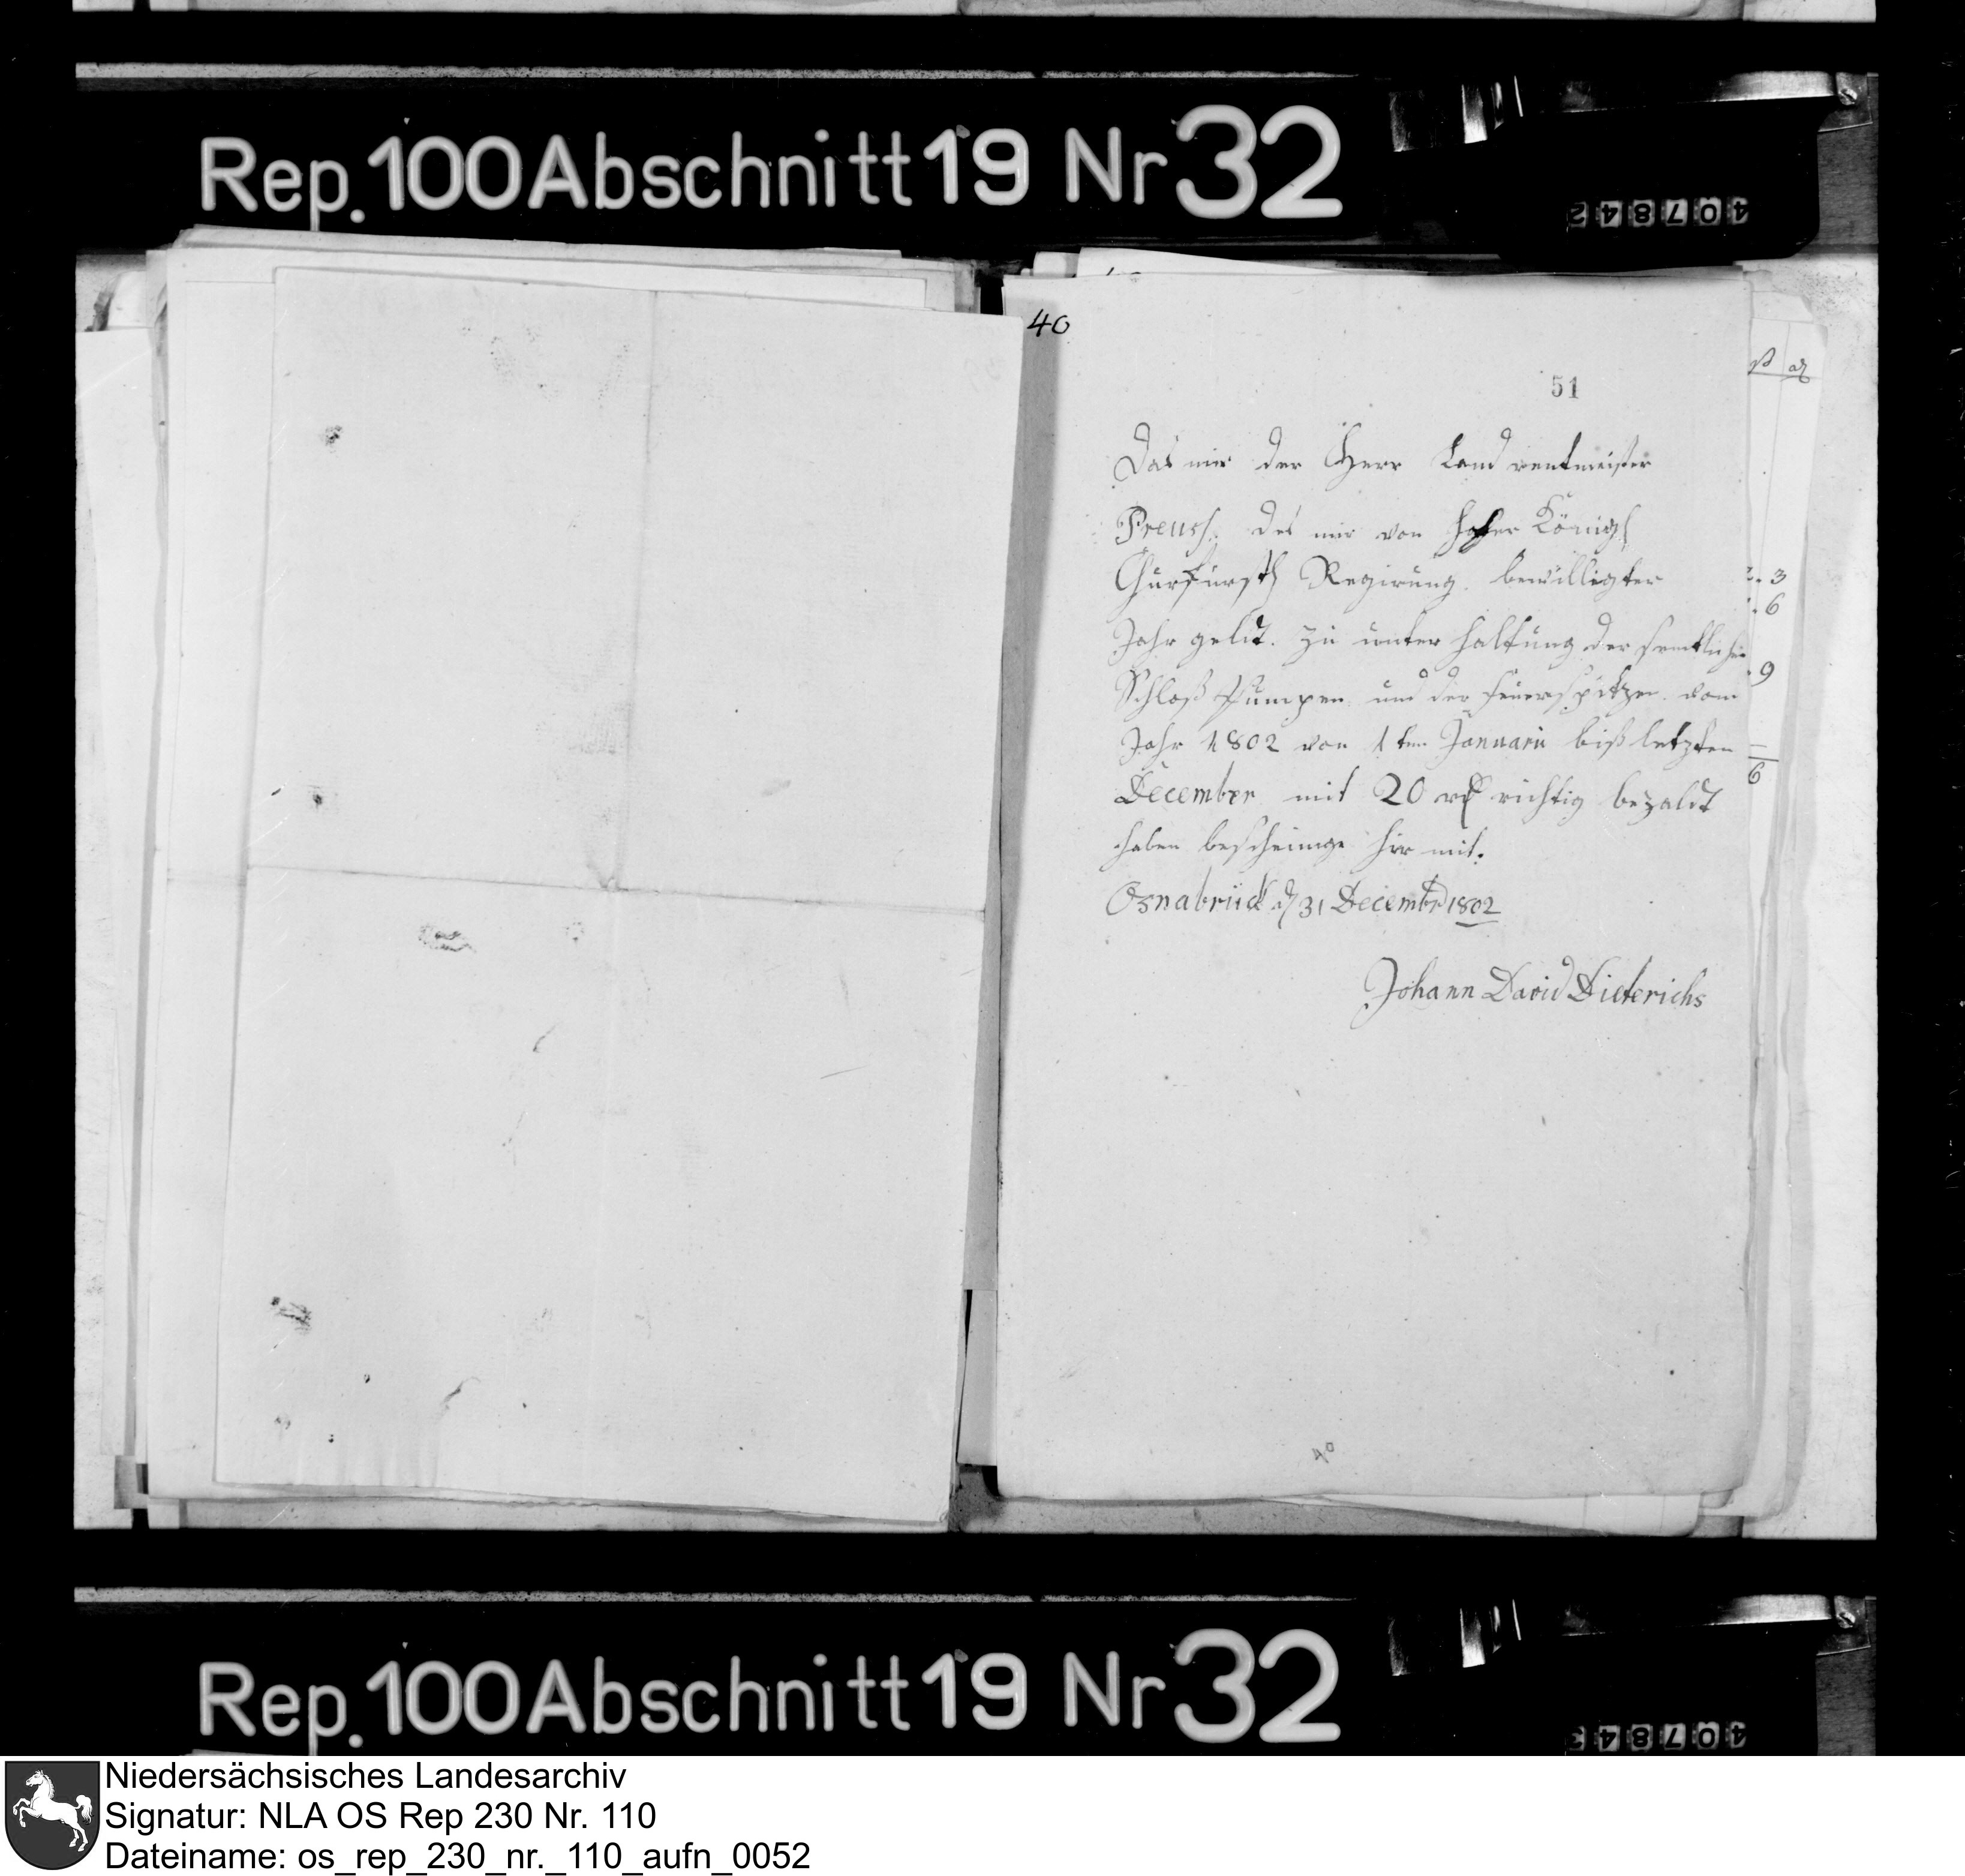 Rep. 100 Abschnitt 19 Nr 32
407842
40
51
Das mir der Herr Land rentmeister
Preuss. das mir von hoher Königl
Churfürstl Regirung. bewilligter
Jahr geldt. zu unter haltung der semtlichen
Schloß Pumpen und der feuerspritzen. vom
Jahr 1802 von 1ten Januarii biß letzten
December mit 20 rthl richtig bezaldt
haben bescheinige hir mit.
Osnabrück d 31 Decembr 1802
Johann David Dieterichs
40
3
6
9
6
Rep. 100 Abschnitt 19 Nr 32
407843
Niedersächsisches Landesarchiv
Signatur: NLA OS Rep 230 Nr. 110
Dateiname: os_rep_230_nr._110_aufn_0052